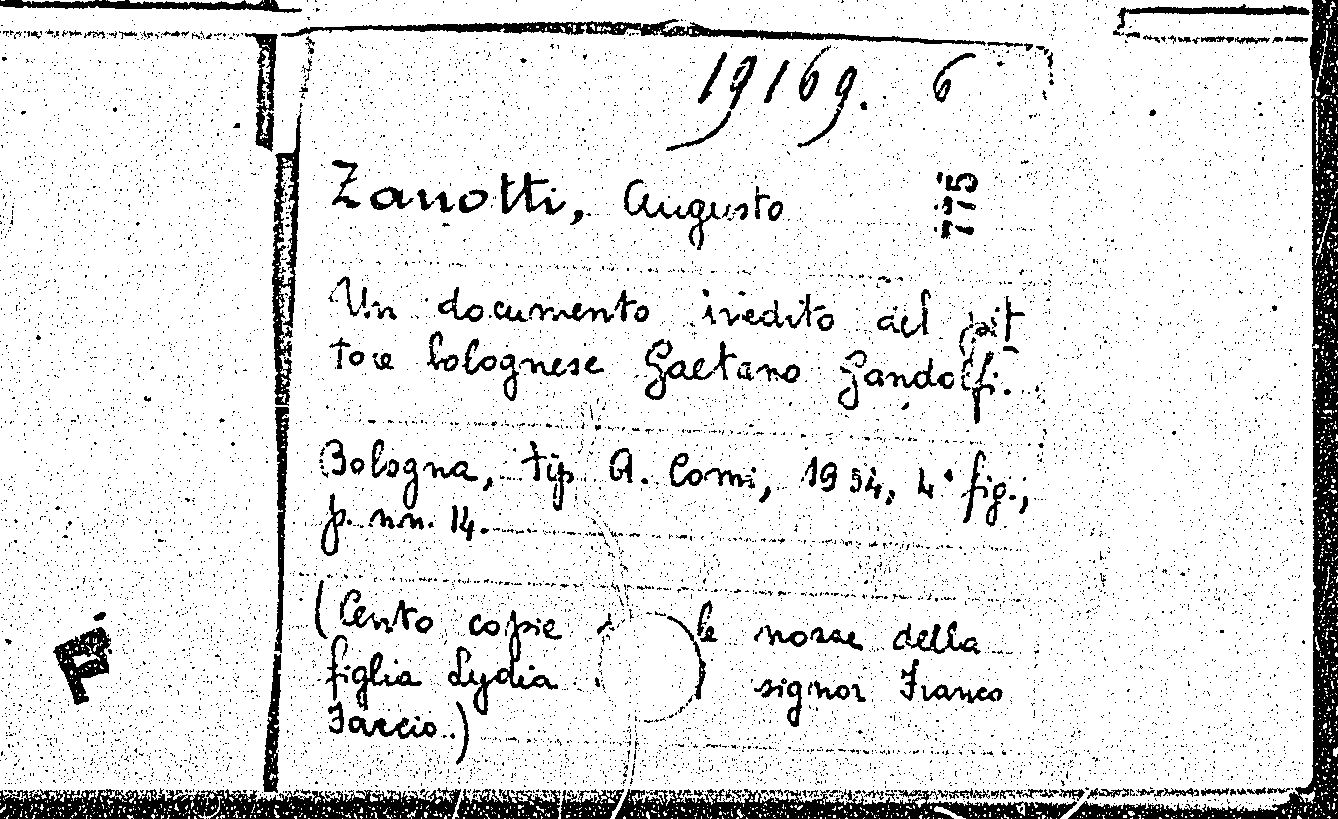 19169. 6
775
Zanotti, Augusto
Un documento inedito del pit
tore bolognese Gaetano Gandolfi.
Bologna, tip A. Comi, 1934, 4° fig.,
p. nn. 14.
(Cento copie le nozze della
figlia Lydia signor Franco
)